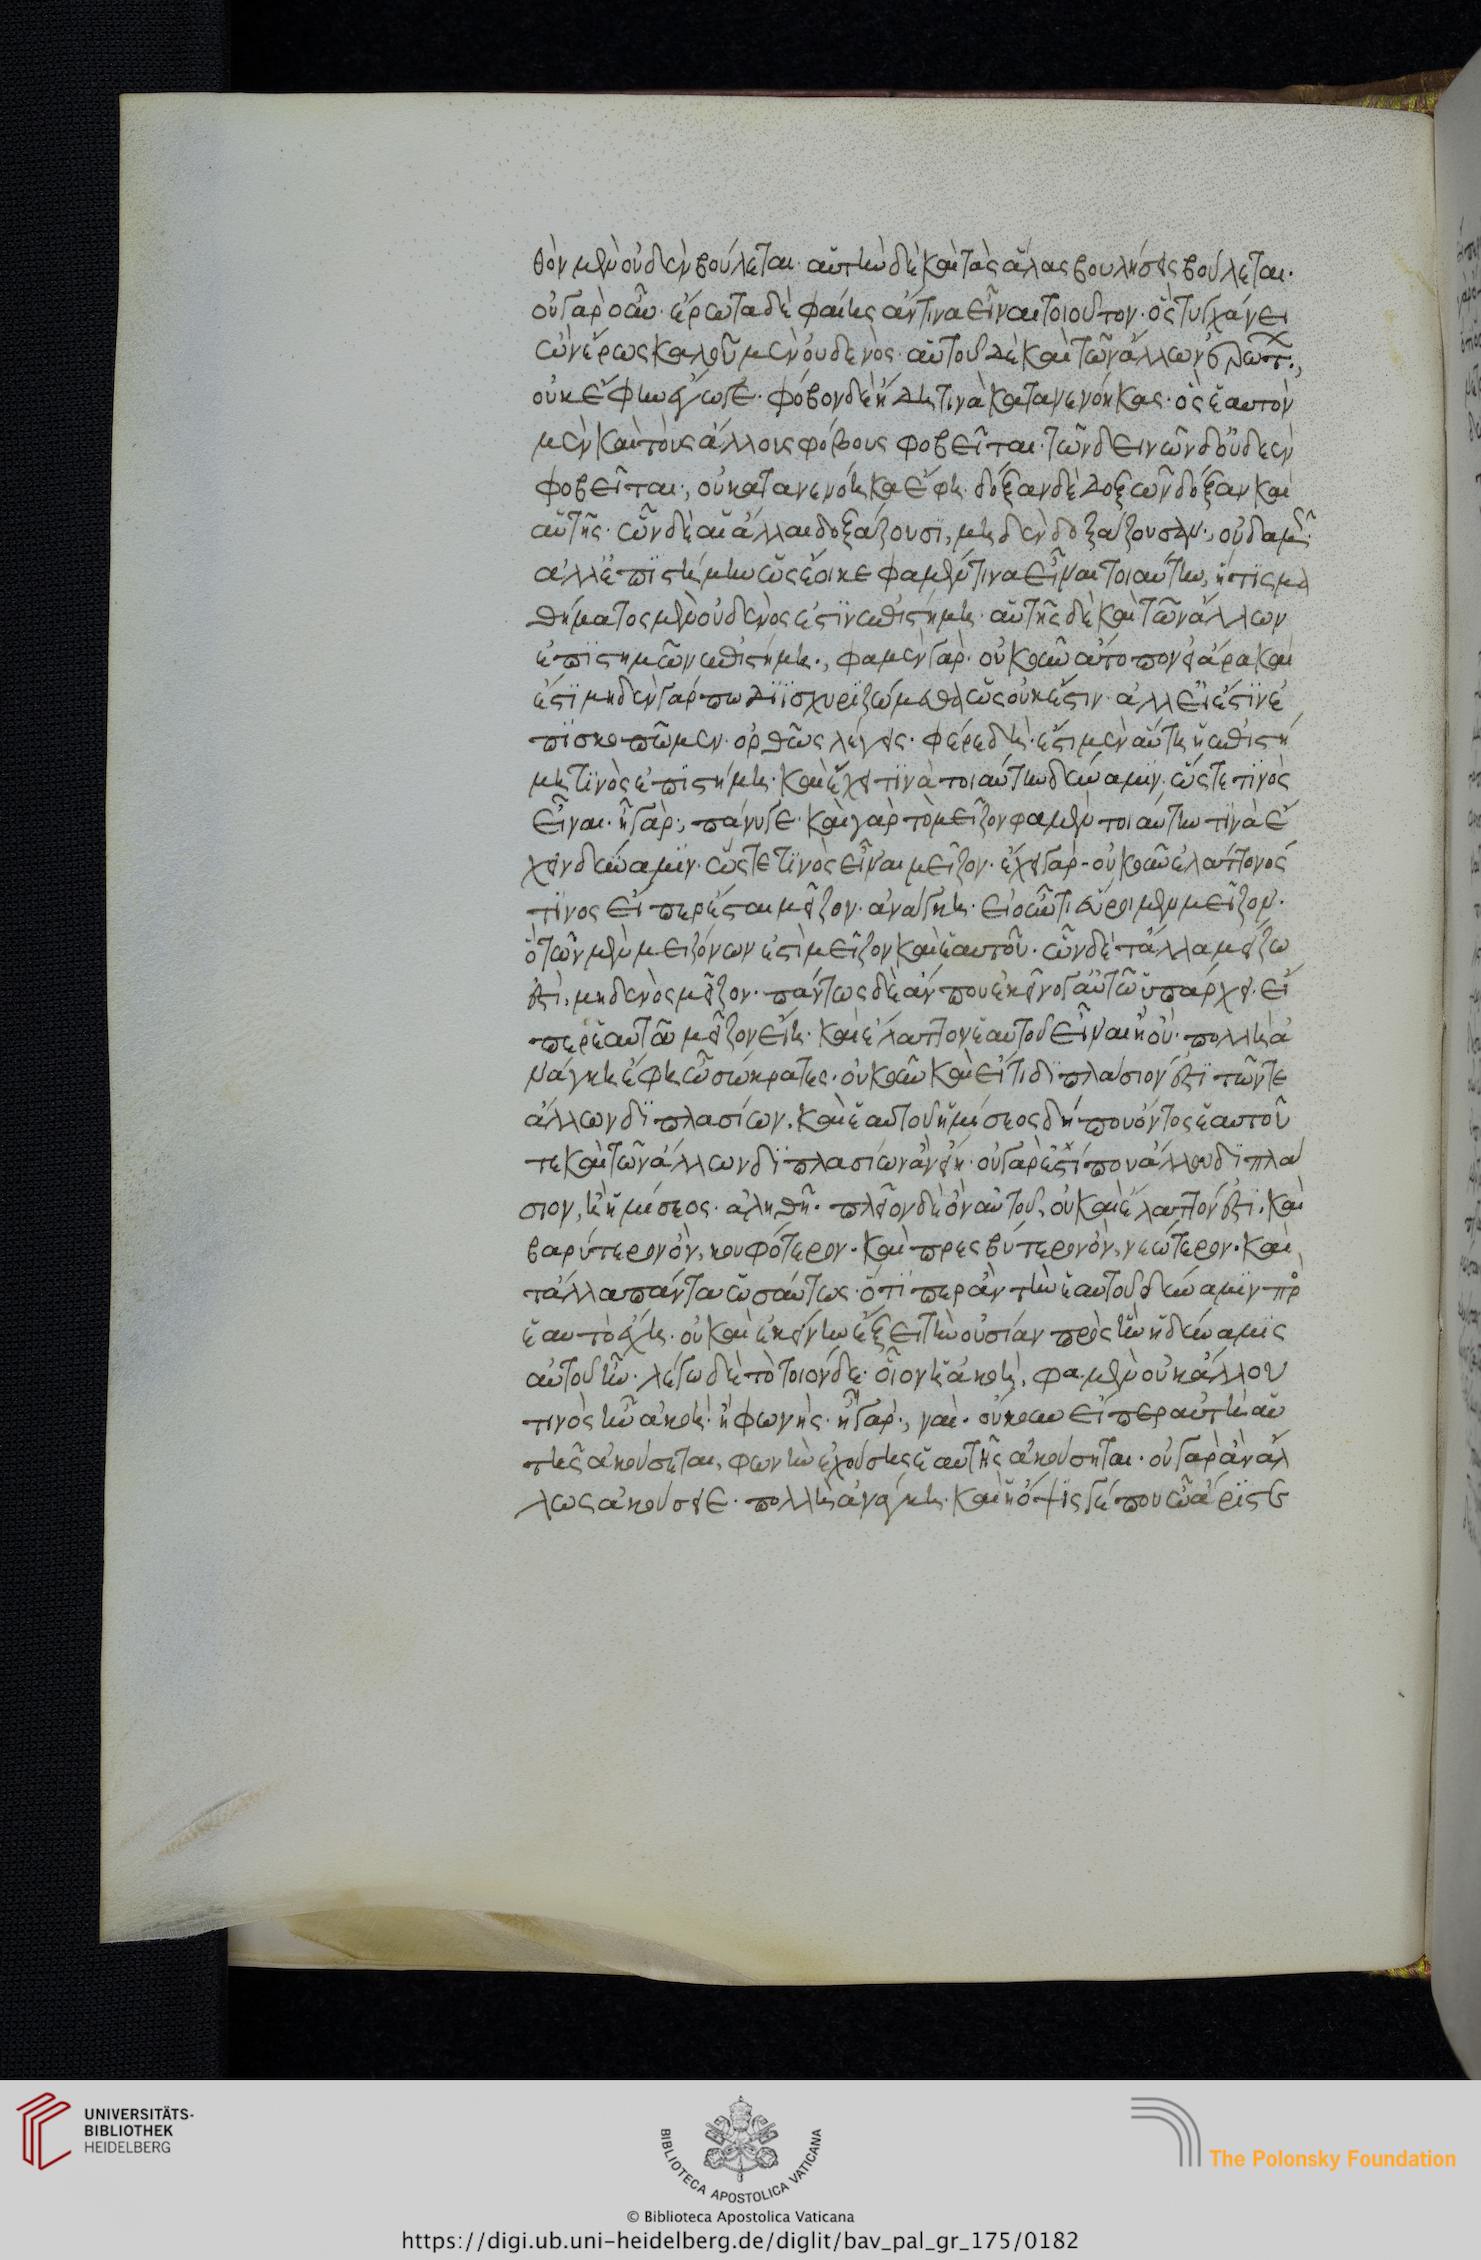 θὸν μὲν οὐδὲν βούλεται· αὑτὴν δὲ καὶ τὰς ἄλας βουλήσεις βούλεται·
οὐ γὰρ οὖν· ἔρωτα δὲ φαίης ἄν τινα εἶναι τοιοῦτον· ὃς τυγχάνει
ὢν ἔρως καλοῦ μὲν οὐδενός· αὑτοῦ δὲ καὶ τῶν ἄλλων ἐρώτ.,
οὐκ ἔφην ἔγωγε· φόβον δὲ ἤδη τινὰ κατανενόηκας· ὃς ἑαυτὸν
μὲν καὶ τοὺς ἄλλους φόβους φοβεῖται· τῶν δεινῶν δ' οὐδὲν
φοβεῖται., οὐ κατανενόηκα ἔφη· δόξαν δὲ δοξῶν δόξαν καὶ
αὑτῆς· ὧν δὲ αἱ ἄλλαι δοξάζουσι, μηδὲν δοξάζουσαν., οὐδαμῶς·
ἀλλ' ἐπιστήμην ὡς ἔοικε φαμέν τινα εἶναι τοιαύτην, ἥτις μα
θήματος μὲν οὐδενός ἐστιν ἐπιστήμη· αὑτῆς δὲ καὶ τῶν ἄλλων
ἐπιστημῶν ἐπιστήμη., φαμὲν γάρ· οὐκοῦν ἄτοπον εἰ ἄρα καὶ
ἔστι μηδὲν γάρ πω διισχυριζώμεθα ὡς οὐκ ἔστιν· ἀλλ' εἰ ἔστιν ἐ
πισκοπῶμεν· ὀρθῶς λέγεις· φέρε δή· ἔστι μὲν αὕτη ἡ ἐπιστή
μη τινὸς ἐπιστήμη· καὶ ἔχει τινὰ τοιαύτην δύναμιν· ὥστε τινὸς
εἶναι· ἦ γάρ., πάνυ γε· καὶ γὰρ τὸ μεῖζον φαμὲν τοιαύτην τινὰ ἔ
χειν δύναμιν· ὥστε τινὸς εἶναι μεῖζον· ἔχει γάρ· οὐκοῦν ἐλάττονός
τινος εἴπερ ἔσται μεῖζον· ἀνάγκη· εἰ οὖν τι εὕροιμεν μεῖζον·
ὃ τῶν μὲν μειζόνων ἐστὶ μεῖζον καὶ ἑαυτοῦ· ὧν δὲ τἄλλα μείζω
ἐστί, μηδενὸς μεῖζον· πάντως δὲ ἄν που ἐκεῖνό γ' αὐτῷ ὑπάρχει· εἴ
περ ἑαυτοῦ μεῖζον εἴη· καὶ ἔλαττον ἑαυτοῦ εἶναι ἢ οὔ· πολλὴ ἀ
νάγκη ἔφη ὦ σώκρατες· οὐκοῦν καὶ εἴ τι διπλάσιόν ἐστι τῶν τε
ἄλλων διπλασίων, καὶ ἑαυτοῦ ἡμίσεος δήπου ὄντος ἑαυτοῦ
τε καὶ τῶν ἄλλων διπλασίων ἂν εἴη· οὐ γὰρ ἔστί που ἄλλου διπλά
σιον, ἢ ἡμίσεος· ἀληθῆ· πλεῖον δὲ ὂν αὑτοῦ, οὐ καὶ ἔλαττόν ἐστι, καὶ
βαρύτερον ὄν, κουφότερον· καὶ πρεσβύτερον ὄν, νεώτερον· καὶ
τἄλλα πάντα ὡσαύτως· ὅτι περ ἂν τὴν ἑαυτοῦ δύναμιν πρὸς
ἑαυτὸ ἔχη· οὐ καὶ ἐκείνην ἕξει τὴν οὐσίαν πρὸς ἣν ἡ δύναμις
αὐτοῦ ἦν· λέγω δὲ τὸ τοιόνδε· οἷον ἡ ἀκοή, φαμὲν οὐκ ἄλλου
τινὸς ἦν ἀκοή· ἢ φωνῆς· ἦ γάρ., ναί· οὐκοῦν εἴπερ αὐτὴ αὑ
τῆς ἀκούσεται, φωνὴν ἐχούσης ἑαυτῆς ἀκούσηται· οὐ γὰρ ἂν ἄλ
λως ἀκούσειε· πολλὴ ἀνάγκη· καὶ ἡ ὄψις γέ που ὦ ἄριστε
UNIVERSITÄTS-
BIBLIOTHEK
HEIDELBERG
BIBLIOTECA APOSTOLICA VATICANA
The Polonsky Foundation
© Biblioteca Apostolica Vaticana
https://digi.ub.uni-heidelberg.de/diglit/bav_pal_gr_175/0182